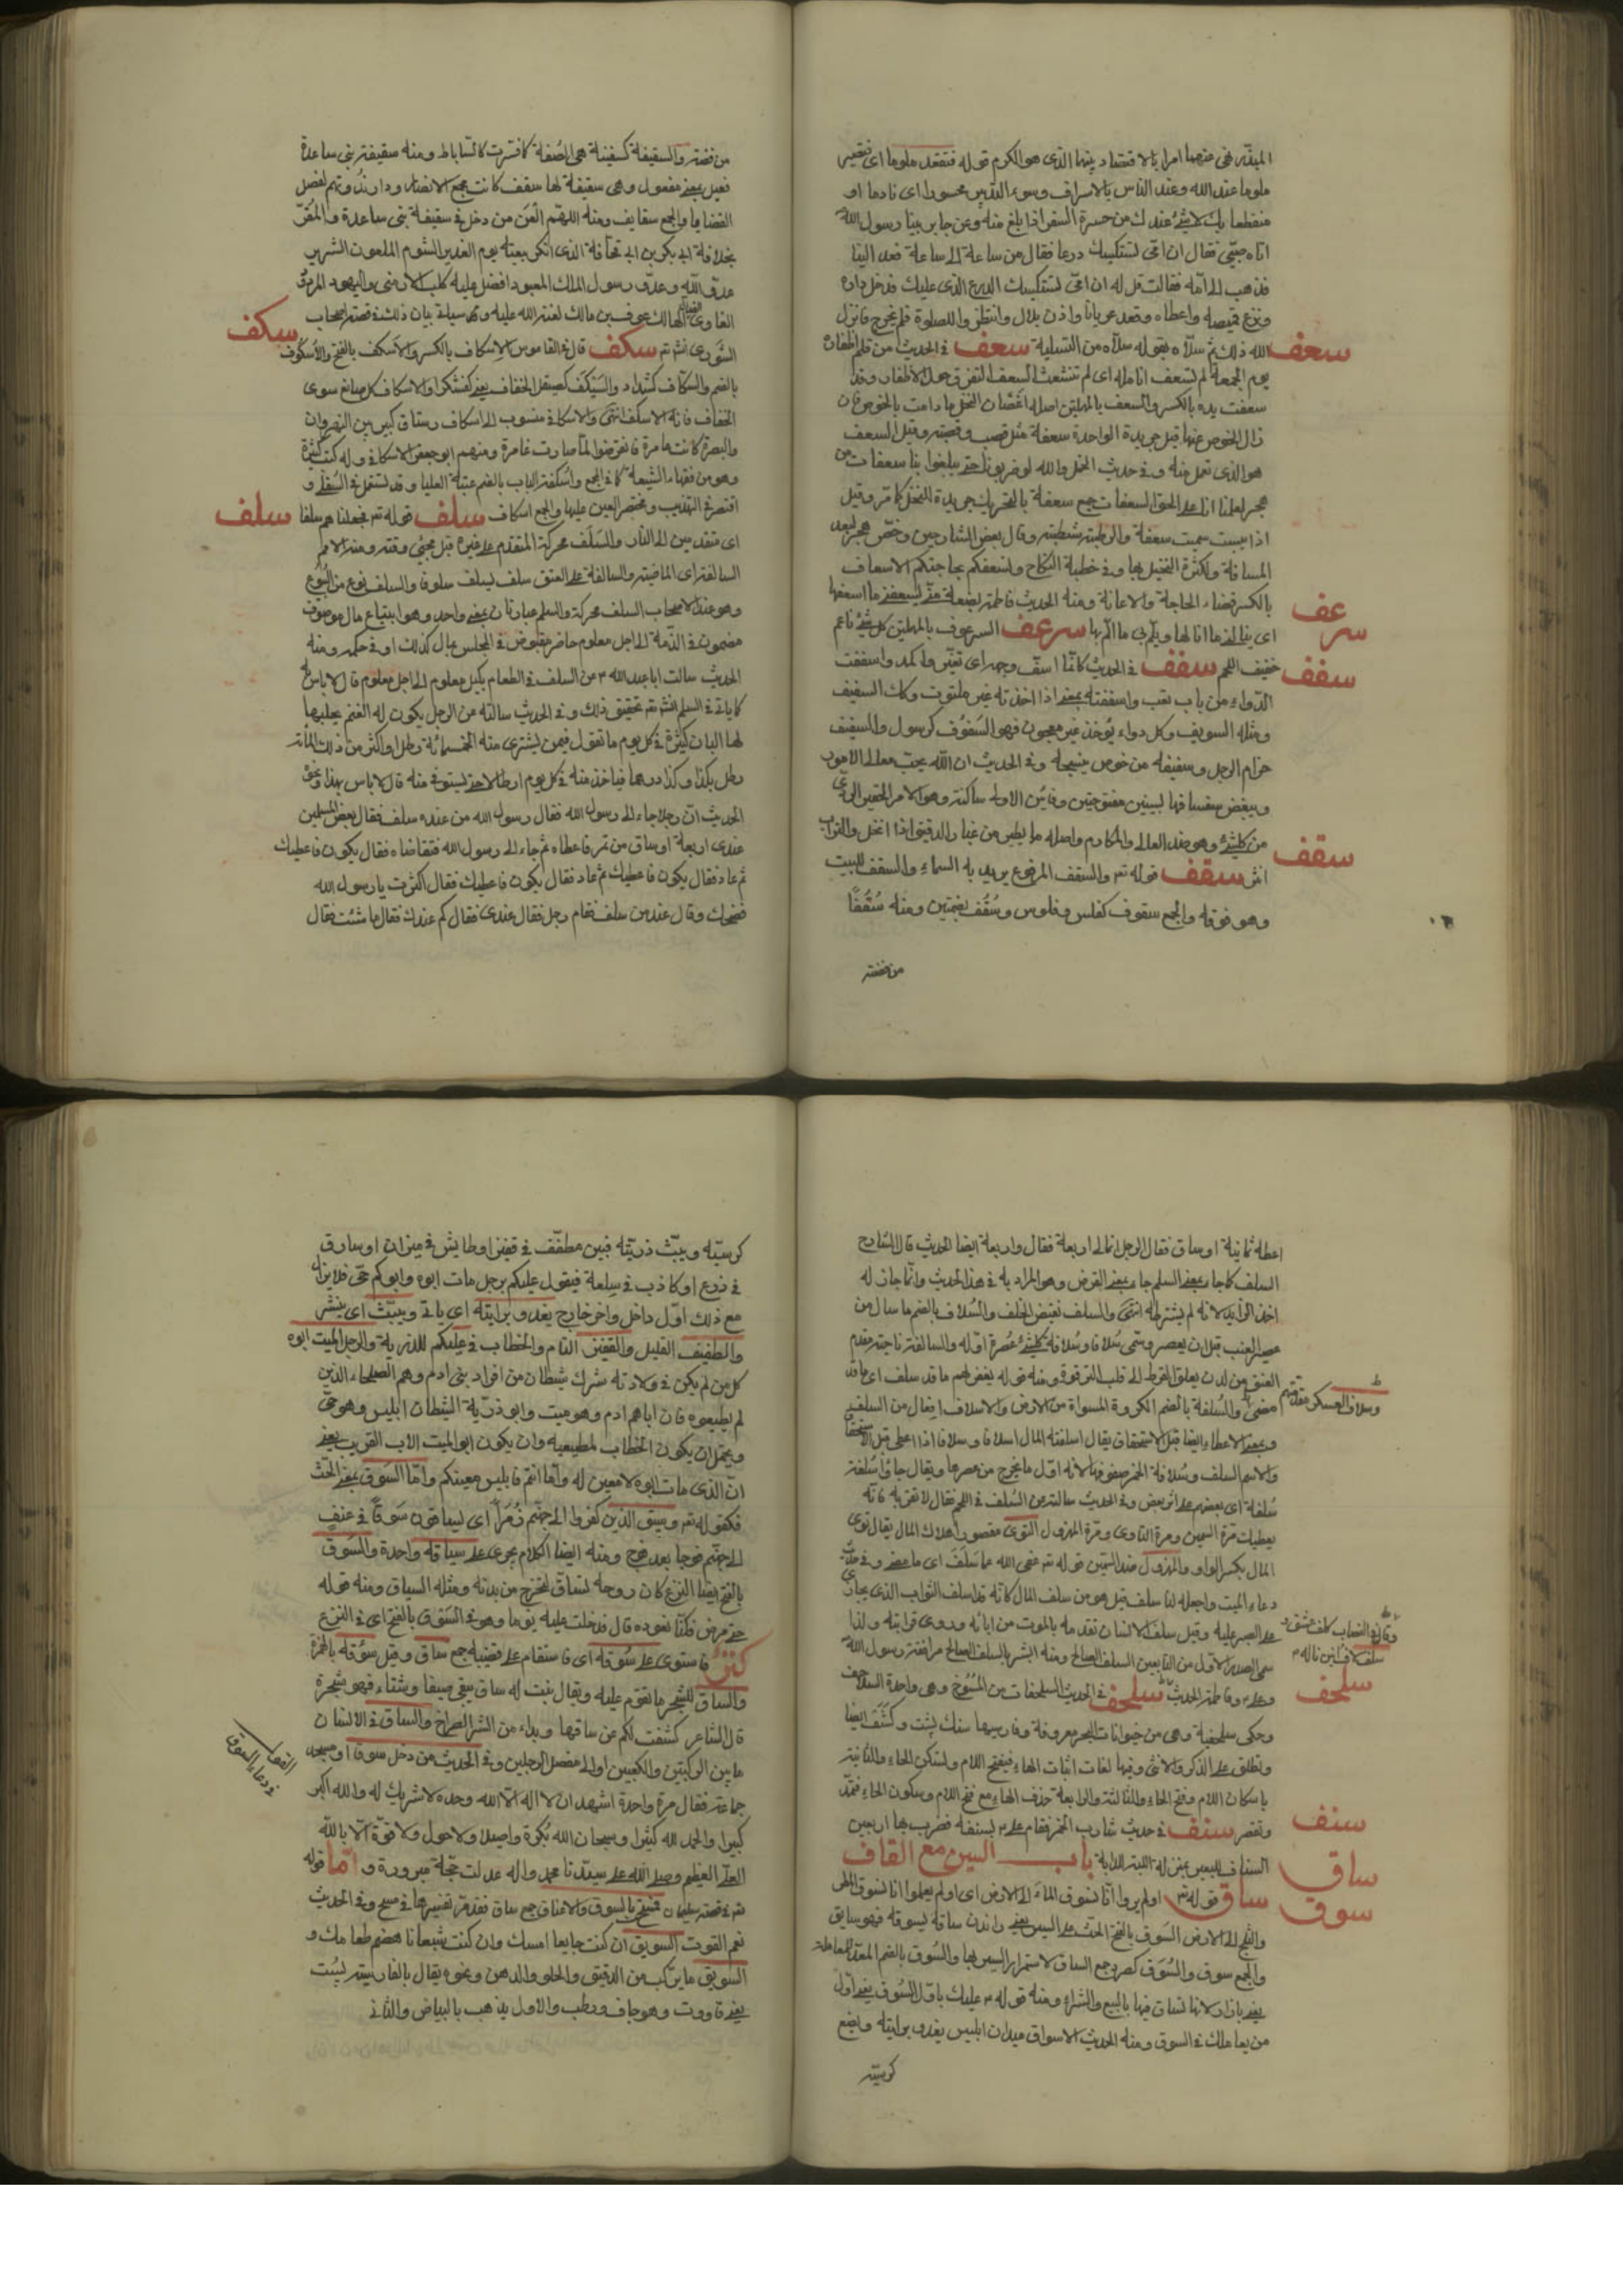 المبذر فنهي عنهما امرا بالاقتصاد بينهما الذي هو الكرم قوله فتقعد ملوما اي فتصير
ملوما عند الله وعند الناس بالاسراف وسوء التدبير محسورا اي نادما او
منقطعا بك لا شيء عندك من حسرة السفر اذا بلغ منه وعن جابر بينا رسول الله
اتاه صبي فقال ان امي تستكسيك درعا فقال من ساعة الى ساعة فعد الينا
فذهب الى امه فقالت قل له ان امي تستكسيك الدرع الذي عليك فدخل داره
ونزع قميصه واعطاه وقعد عريانا واذن بلال وانتظر للصلوة فلم يخرج فانزل
الله ذلك ثم سلاه بقوله سلاه من التسلية سعف في الحديث من قلم اظفاره
سعف
يوم الجمعة لم تسعف انامله اي لم تتشعث السعف التفرق حول الاظفار وقد
سعفت يده بالكسر والسعف بالمهملتين اصله اغصان النخل ما دامت بالخوص فان
زال الخوص عنها قيل جريدة الواحدة سعفة مثل قصب وقصبة وقيل السعف
هو الذي تعمل منه وفي حديث النخل والله لو ضربونا حتى يبلغوا بنا سعفات من
هجر لعلمنا انا على الحق السعفات جمع سعفة بالتحريك جريدة النخل كما مر وقيل
اذا يبست سميت سعفة والرطبة شطبة وقال بعض الشارحين وخص هجر لبعد
المسافة ولكثرة النخيل بها وفي خطبة النكاح واسعفكم بحاجتكم الاسعاف
بالكسر قضاء الحاجة والاعانة ومنه الحديث فاطمة بضعة مني يسعفني ما اسعفها
اي ينالني ما انا لها ويلم بي ما الم بها سرعف السرعوف بالمهملتين كل شيء ناعم
سرعف
خفيف اللحم سفف في الحديث كانما اسف وجهه اي تغير واكمد واسففت
سفف
الدواء من باب تعب واسففته بمعنى اذا اخذته غير ملتوت وكك السفيف
ومثله السويق وكل دواء يؤخذ غير معجون فهو السفوف كرسول والسفيف
حزام الرحل وسفيفه من خوص ينسجه وفي الحديث ان الله يحب معالي الامور
ويبغض سفسافها بسينين مفتوحتين وفائين الاولى ساكنة وهو الامر الحقير الردي
من كل شيء وهو ضد العالي والمكارم واصله ما يطير من غبار الدقيق اذا انخل والتراب
اثير سقف قوله تع والسقف المرفوع يريد به السماء والسقف للبيت
سقف
وهو فوقه والجمع سقوف كفلس وفلوس وسقف بضمتين ومنه سقفا
من فضة
من فضة والسقيفة كسفينة هي الصفة كما فسرت كالساباط ومنه سقيفة بني ساعدة
فعيل بمعنى مفعول وهي سقيفة لها سقف كانت مجمع الانصار ودار ندوتهم لفصل
القضايا والجمع سقايف ومنه اللهم العن من دخل في سقيفة بني ساعدة والمقر
بخلافة ابي بكر بن ابي قحافة الذي انكر بيعته يوم الغدير الشوم الملعون الشرير
عدو الله وعدو رسول الملك المعبود افضل عليه كلب الارمني واليهود المردود
الغاوي الهالك عوف بن مالك لعنة الله عليه وسياتي بيان ذلك في قصة اصحاب
الشورى انش تع سكف قال في القاموس الاسكاف بالكسر والاسكف بالفتح والاسكوف
سكف
بالضم والسكاف كشداد والسيكف كصيقل الخفاف يعني كفشكر او الاسكاف كل صانع سوى
الخفاف فانه الاسكف انتهى والاسكافي منسوب الى اسكاف رستاق كبير بين النهروان
والبصرة كانت عامرة فانقرضوا لما صارت غامرة ومنهم ابو جعفر الاسكافي وله كتب كثيرة
وهو من فقهاء الشيعة كما في المجمع واسكفة الباب بالضم عتبة العليا وقد تستعمل في السفلى و
اقتصر في التهذيب ومختصر العين عليها والجمع اسكاف سلف قوله تع فجعلناهم سلفا
سلف
اي متقدمين الى النار والسلف محركة المتقدم على غيره قبل مجيء وقته ومنه الامم
السالفة اي الماضية والسالفة على العنق سلف يسلف سلوفا والسلف نوع من البيوع
وهو عند الاصحاب السلف محركة والسلم عبارتان بمعنى واحد وهو ابتياع مال موصوف
مضمون في الذمة الى اجل معلوم حاضر مقبوض في المجلس بمال كذلك او في حكمه ومنه
الحديث سالت ابا عبد الله ع من السلف في الطعام بكيل معلوم الى اجل معلوم قال لا باس به
كما ياتي في السلم انش تع تحقيق ذلك وفي الحديث سالته عن الرجل يكون له الغنم يحلبها
لها البان كثيرة في كل يوم ما تقول فيمن يشتري منه الخمسمائة رطل او اكثر من ذلك المائة
رطل بكذا وكذا درهما فياخذ منه في كل يوم ارطالا حتى يستوفي منه قال لا باس بهذا ونحوه
الحديث ان رجلا جاء الى رسول الله فقال رسول الله من عنده سلف فقال بعض المسلمين
عندي اربعة اوساق من تمر فاعطاه ثم جاء الى رسول الله فتقاضاه فقال يكون فاعطيك
ثم عاد فقال يكون فاعطيك ثم عاد فقال يكون فاعطيك فقال اكثرت يا رسول الله
فضحك وقال عند من سلف فقام رجل فقال عندي فقال كم عندك فقال ما شئت فقال
اعطه ثمانية اوساق فقال الرجل انما لي اربعة فقال واربعة ايضا الحديث قال الشارح
السلف كما جاء بمعنى السلم جاء بمعنى القرض وهو المراد به في هذا الحديث وانما جاز له
اخذ الزايد لانه لم يشترطه انتهى والسلف نقيض الخلف والسلاف بالضم ما سال من
عصير العنب قبل ان يعصر وتسمى سلافا وسلافة كل شيء عصرة اوله والسالفة ناحية مقدم
العنق من لدن يعلق القرط الى قلب الترقوة ومنه قوله يغفر لهم ما قد سلف اي ما قد
وسلاف العسكر مقدمتهم
مضى والسلفة بالضم الكرة المسواة من الارض والاسلاف افعال من السلف
وبمعنى الاعطاء ايضا قبل الاستحقاق يقال اسلفته المال اسلافا وسلافا اذا اعطي قبل الاستحقاق
والاسم السلف وسلافة الخمر صفوفها لانه اول ما يخرج من عصرها ويقال جاؤا سلفة
سلفة اي بعضهم على اثر بعض وفي الحديث سالته عن السلف في اللحم فقال لا تقربه فانه
يعطيك مرة السمين ومرة التاوي ومرة المهزول التوى مقصور هلاك المال يقال توي
المال بكسر الواو والمهزول ضد السمين قوله تع عفى الله عما سلف اي ما مضى وفي
دعاء الميت واجعله لنا سلف قيل هو من سلف المال كانه قد اسلف الثواب الذي يجازى
على الصبر عليه وقيل سلف الانسان تقدمه بالموت من ابائه وذوي قرابته ولذا
سمي الصدر الاول من التابعين السلف الصالح ومنه ابشر بالسلف الصالح مرافقة رسول الله
وعلي وفاطمة الحديث سلحف في الحديث السلحفات من المسوخ وهي واحدة السلاحف
سلحف
وحكي سلحفية وهي من حيوانات البحر معروفة وفارسيها سنك پشت وكشف ايضا
وتطلق على الذكر والانثى وفيها لغات اثبات الهاء فيفتح اللام وتسكن الحاء والثانية
باسكان اللام وفتح الحاء والثالثة والرابعة حذف الهاء مع فتح اللام وسكون الحاء فتمد
وتقصر سنف في حديث شارب الخمر فقام علي ع بسنفه فضرب بها اربعين
سنف
السناف للبعير بمنزلة اللبب للدابة باب السين مع القاف
ساق قوله تع اولم يروا انا نسوق الماء الى الارض اي اولم يعلموا انا نسوق المطر
ساق
سوق
والثلج الى الارض السوق بالفتح الحث على السير يعني راندن ساقه يسوقه فهو سايق
والجمع سوق والسوق كصرد جمع الساق لاستمرار السير بها والسوق بالضم المعد للمعاملة
يعني بازار لانها تساق فيها بالبيع والشراء ومنه قوله ع عليك باول السوق يعني اول
من يعاملك في السوق ومنه الحديث الاسواق ميدان ابليس يغدو برايته ويضع
كرسيه
كرسيه ويبث ذريته فبين مطفف في قفيز او طايش في ميزان او سارق
في ذرع او كاذب في سلعة فيقول عليكم برجل مات ابوه وابوكم حي فلا يزال
مع ذلك اول داخل واخر خارج يغدو برايته اي ياتي ويبث اي ينشر
والطفيف القليل والقفيز التام والخطاب في عليكم للذرية والرجل الميت ابوه
كل من لم يكن في ولادته شرك شيطان من افراد بني ادم وهم الصلحاء الذين
لم يطيعوه فان اباهم ادم وهو ميت وابو ذرية الشيطان ابليس وهو حي
ويحتمل ان يكون الخطاب لمطيعيه وان يكون ابو الميت الاب القريب يعني
ان الذي مات ابوه لا معين له واما انتم فابليس معينكم واما السوق بمعنى الحث
فكقوله تع وسيق الذين كفروا الى جهنم زمرا اي يساقون سوقا في عنف
الى جهنم فوجا بعد فوج ومنه ايضا الكلام يجري على سياقه واحدة والسوق
بالفتح ايضا النزع كان روحه تساق لتخرج من بدنه ومثله السياق ومنه قوله
حتى مرض فكنا نعوده قال فدخلت عليه يوما وهو في السوق بالفتح اي في النزع
فاستوى على سوقه اي فاستقام على قصبه جمع ساق وقيل سؤقه بالهمزة
والساق للشجر ما تقوم عليه ويقال نبت له ساق يبقى صيفا وشتاء فهو شجرة
قال الشاعر كشفت لكم عن ساقها وبداء من الشر الصراح والساق في الانسان
ما بين الركبتين والكعبين او الى مفصل الرجلين وفي الحديث من دخل سوقا او مسجد
جماعة فقال مرة واحدة اشهد ان لا اله الا الله وحده لا شريك له والله اكبر
كبيرا والحمد لله كثيرا وسبحان الله بكرة واصيلا ولا حول ولا قوة الا بالله
العلي العظيم وصلى الله على سيدنا محمد واله عدلت حجة مبرورة و اما قوله
تع في قصة سليمان فطفق بالسوق والاعناق جمع ساق فقد مر تفسيرها في مسح وفي الحديث
نعم القوت السويق ان كنت جايعا امسك وان كنت شبعانا هضم طعامك و
السويق ما يركب من الدقيق والحلو والدهن ونحوه يقال بالفارسية پست
يعني قاووت وهو جاف ورطب والاول يذهب بالبياض والثاني